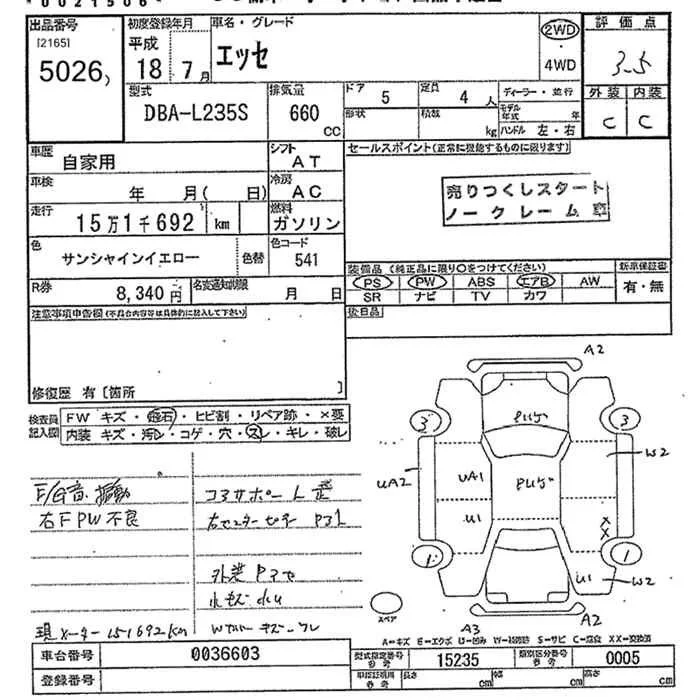 0021506
出品番号 初度登録年月 車名・グレード 2WD 評価点
[2165] 平成 エッセ 3.5
5026 18 7月 4WD
型式 排気量 ドア 5 定員 4 人 ディーラー・並行 外装 内装
DBA-L235S 660 CC 形状 積載 kg モデル年式 年 ハンドル 左・右 C C
車歴 自家用 シフト AT セールスポイント(正常に機能するものに限ります)
車検 年 月( 日) 冷房 AC 売りつくしスタート
走行 15万1千692 km 燃料 ガソリン ノークレーム
色 サンシャインイエロー 色替 色コード 541
装備品 (純正品に限り○をつけてください) 新車保証書
R券 8,340円 名変通知期限 月 日 PS PW ABS エアB AW 有・無
SR ナビ TV カワ
注意事項申告欄(不具合内容等は具体的に記入して下さい) 後日品
修復歴 有〔箇所 〕
A2
検査員記入図 FW キズ・飛石・ヒビ割・リペア跡・×要
内装 キズ・汚レ・コゲ・穴・スレ・キレ・破レ
3 3
W2
UA2 UA1
U1
X
X
1 1
U1 W2
A3 A2
スペア
E/G音 振動 コアサポートL
右FPW不良 右センターピラー
外装
現メーター151692km
A=キズ E=エクボ U=凹み W=補修跡 S=サビ C=腐食 XX=交換済
車台番号 0036603 型式指定番号 参考 15235 類別区分番号 参考 0005
登録番号 車庫証明用 参考 長さ cm 幅 cm 高さ cm